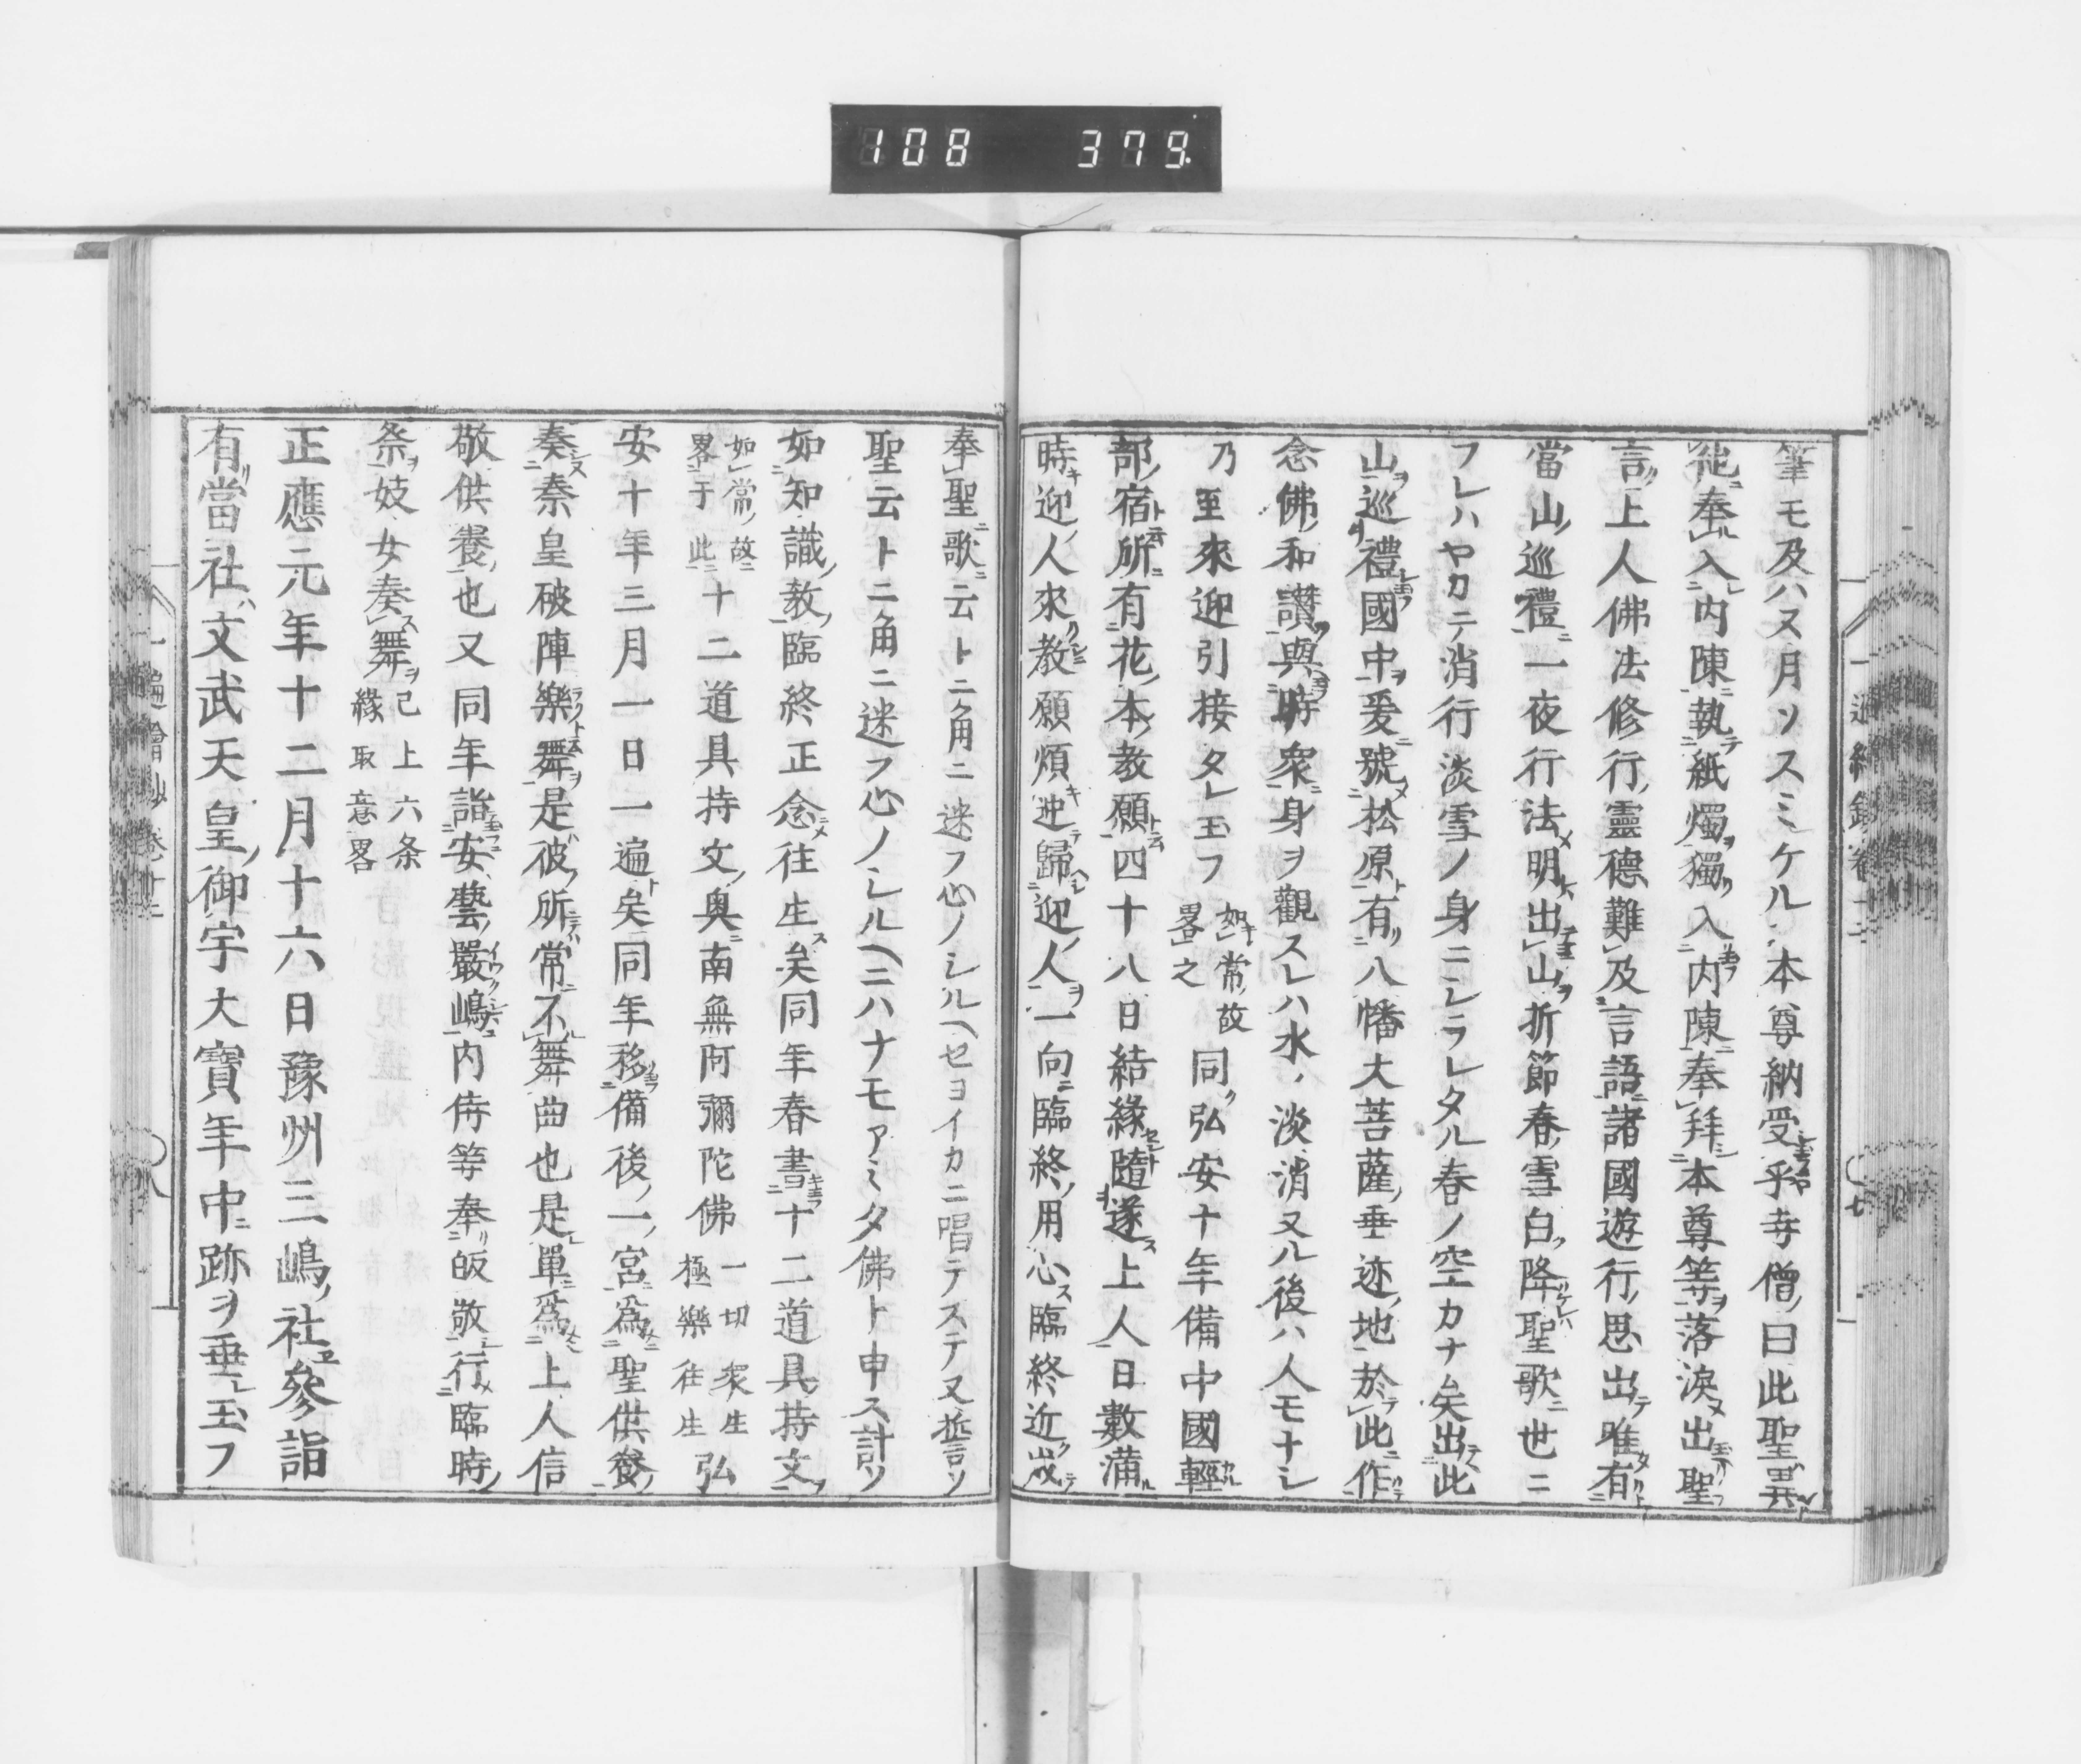 108 379
筆モ及ハス月ソスミケル本尊納受乎寺僧曰此聖異
他奉入内陳執紙燭獨入内陳奉拜本尊等落淚出聖
言上人佛法修行靈德難及言語諸國遊行思出唯有
當山巡禮一夜行法明出山折節春雪白降聖歌也ニ
フレハヤカテ消行淡雪ノ身ニシラレタル春ノ空カナム矣出此
山巡禮國中爰號松原有八幡大菩薩垂迹地於此作
念佛和讚與時衆身ヲ觀スレハ水ノ淡消又ル後ハ人モナシ
乃至來迎引接タレ玉フ如常故畧之同弘安十年備中國輕
部宿所有花本教願四十八日結緣隨遂上人日數滿
時迎人來教願煩迎歸迎人一向臨終用心ス臨終近成
奉聖歌云トニ角ニ迷フ心ノシルヘセヨイカニ唱テステ又誓ソ
聖云トニ角ニ迷フ心ノシルヘニハナモアミタ佛ト申ス計ソ
如知識教臨終正念往生矣同年春書十二道具持文
如常故畧于此十二道具持文奥南無阿彌陀佛一切衆生極樂往生弘
安十年三月一日一遍矣同年移備後一宮爲聖供養
奏秦皇破陣樂舞是彼所常不舞曲也是單爲上人信
敬供養也又同年詣安藝嚴嶋内侍等奉皈敬行臨時
祭妓女奏舞ヲ已上六条緣取意畧
正應元年十二月十六日豫州三嶋社參詣
有當社文武天皇御宇大寶年中跡ヲ垂レ玉フ